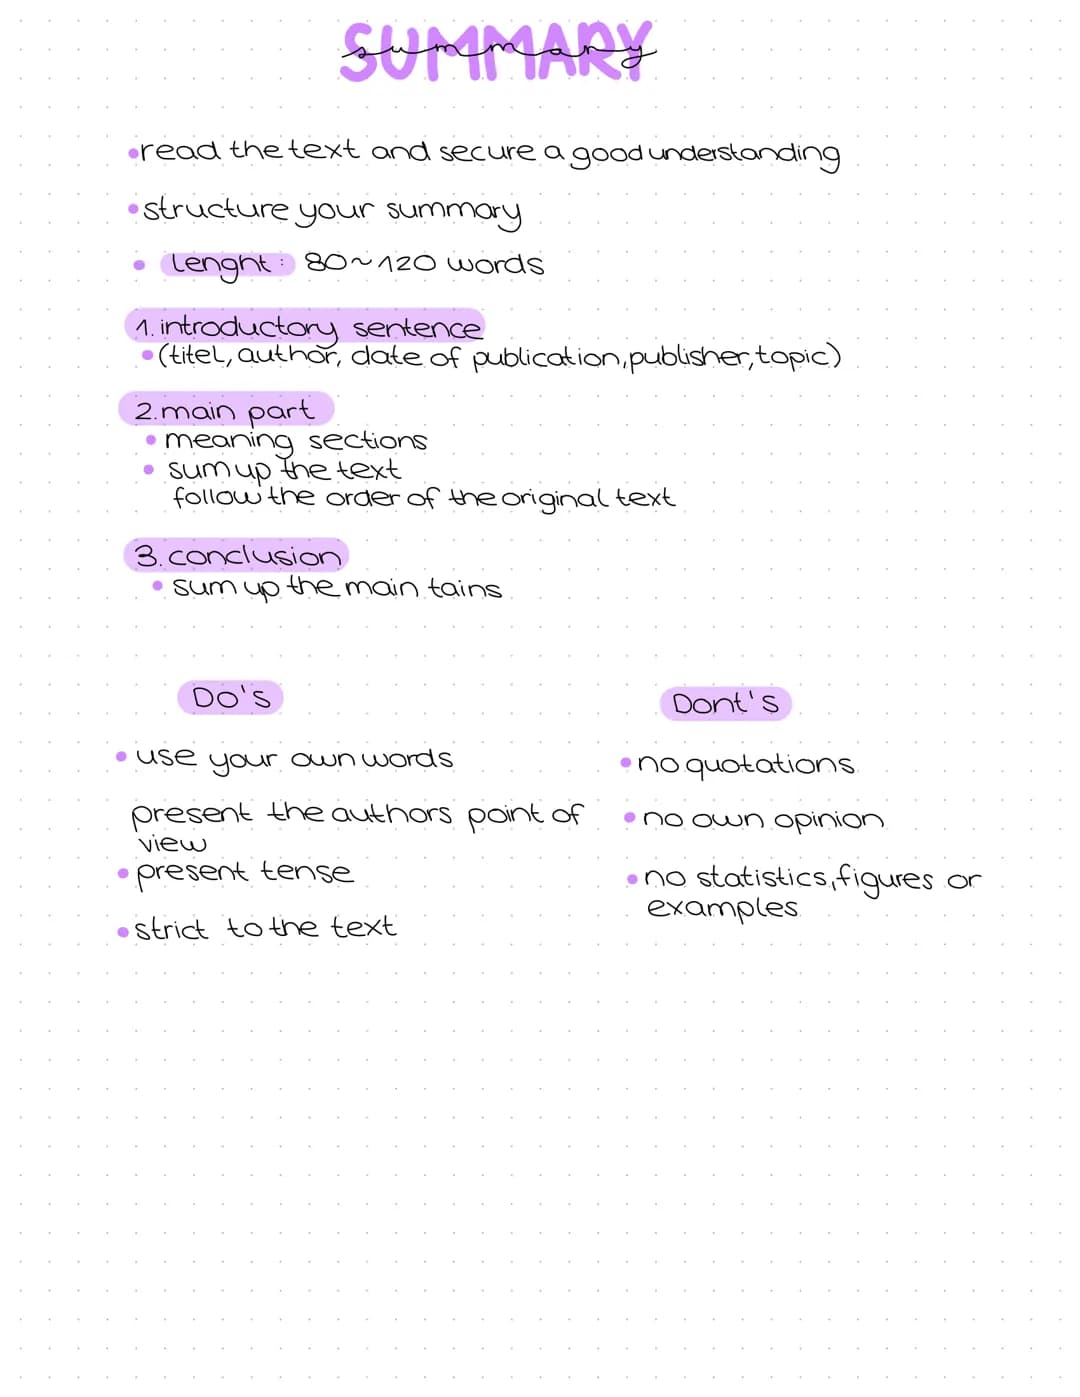 SUMMARY
summary
•read the text and secure a good understanding
•structure your summary
• Lenght: 80~120 words
1. introductory sentence
•(titel, author, date of publication, publisher, topic)
2. main part
• meaning sections
• sum up the text
follow the order of the original text
3. conclusion
• sum up the main tains
Do's
• use your own words
present the authors point of
view
• present tense
• strict to the text
Dont's
• no quotations
• no own opinion
• no statistics, figures or
examples